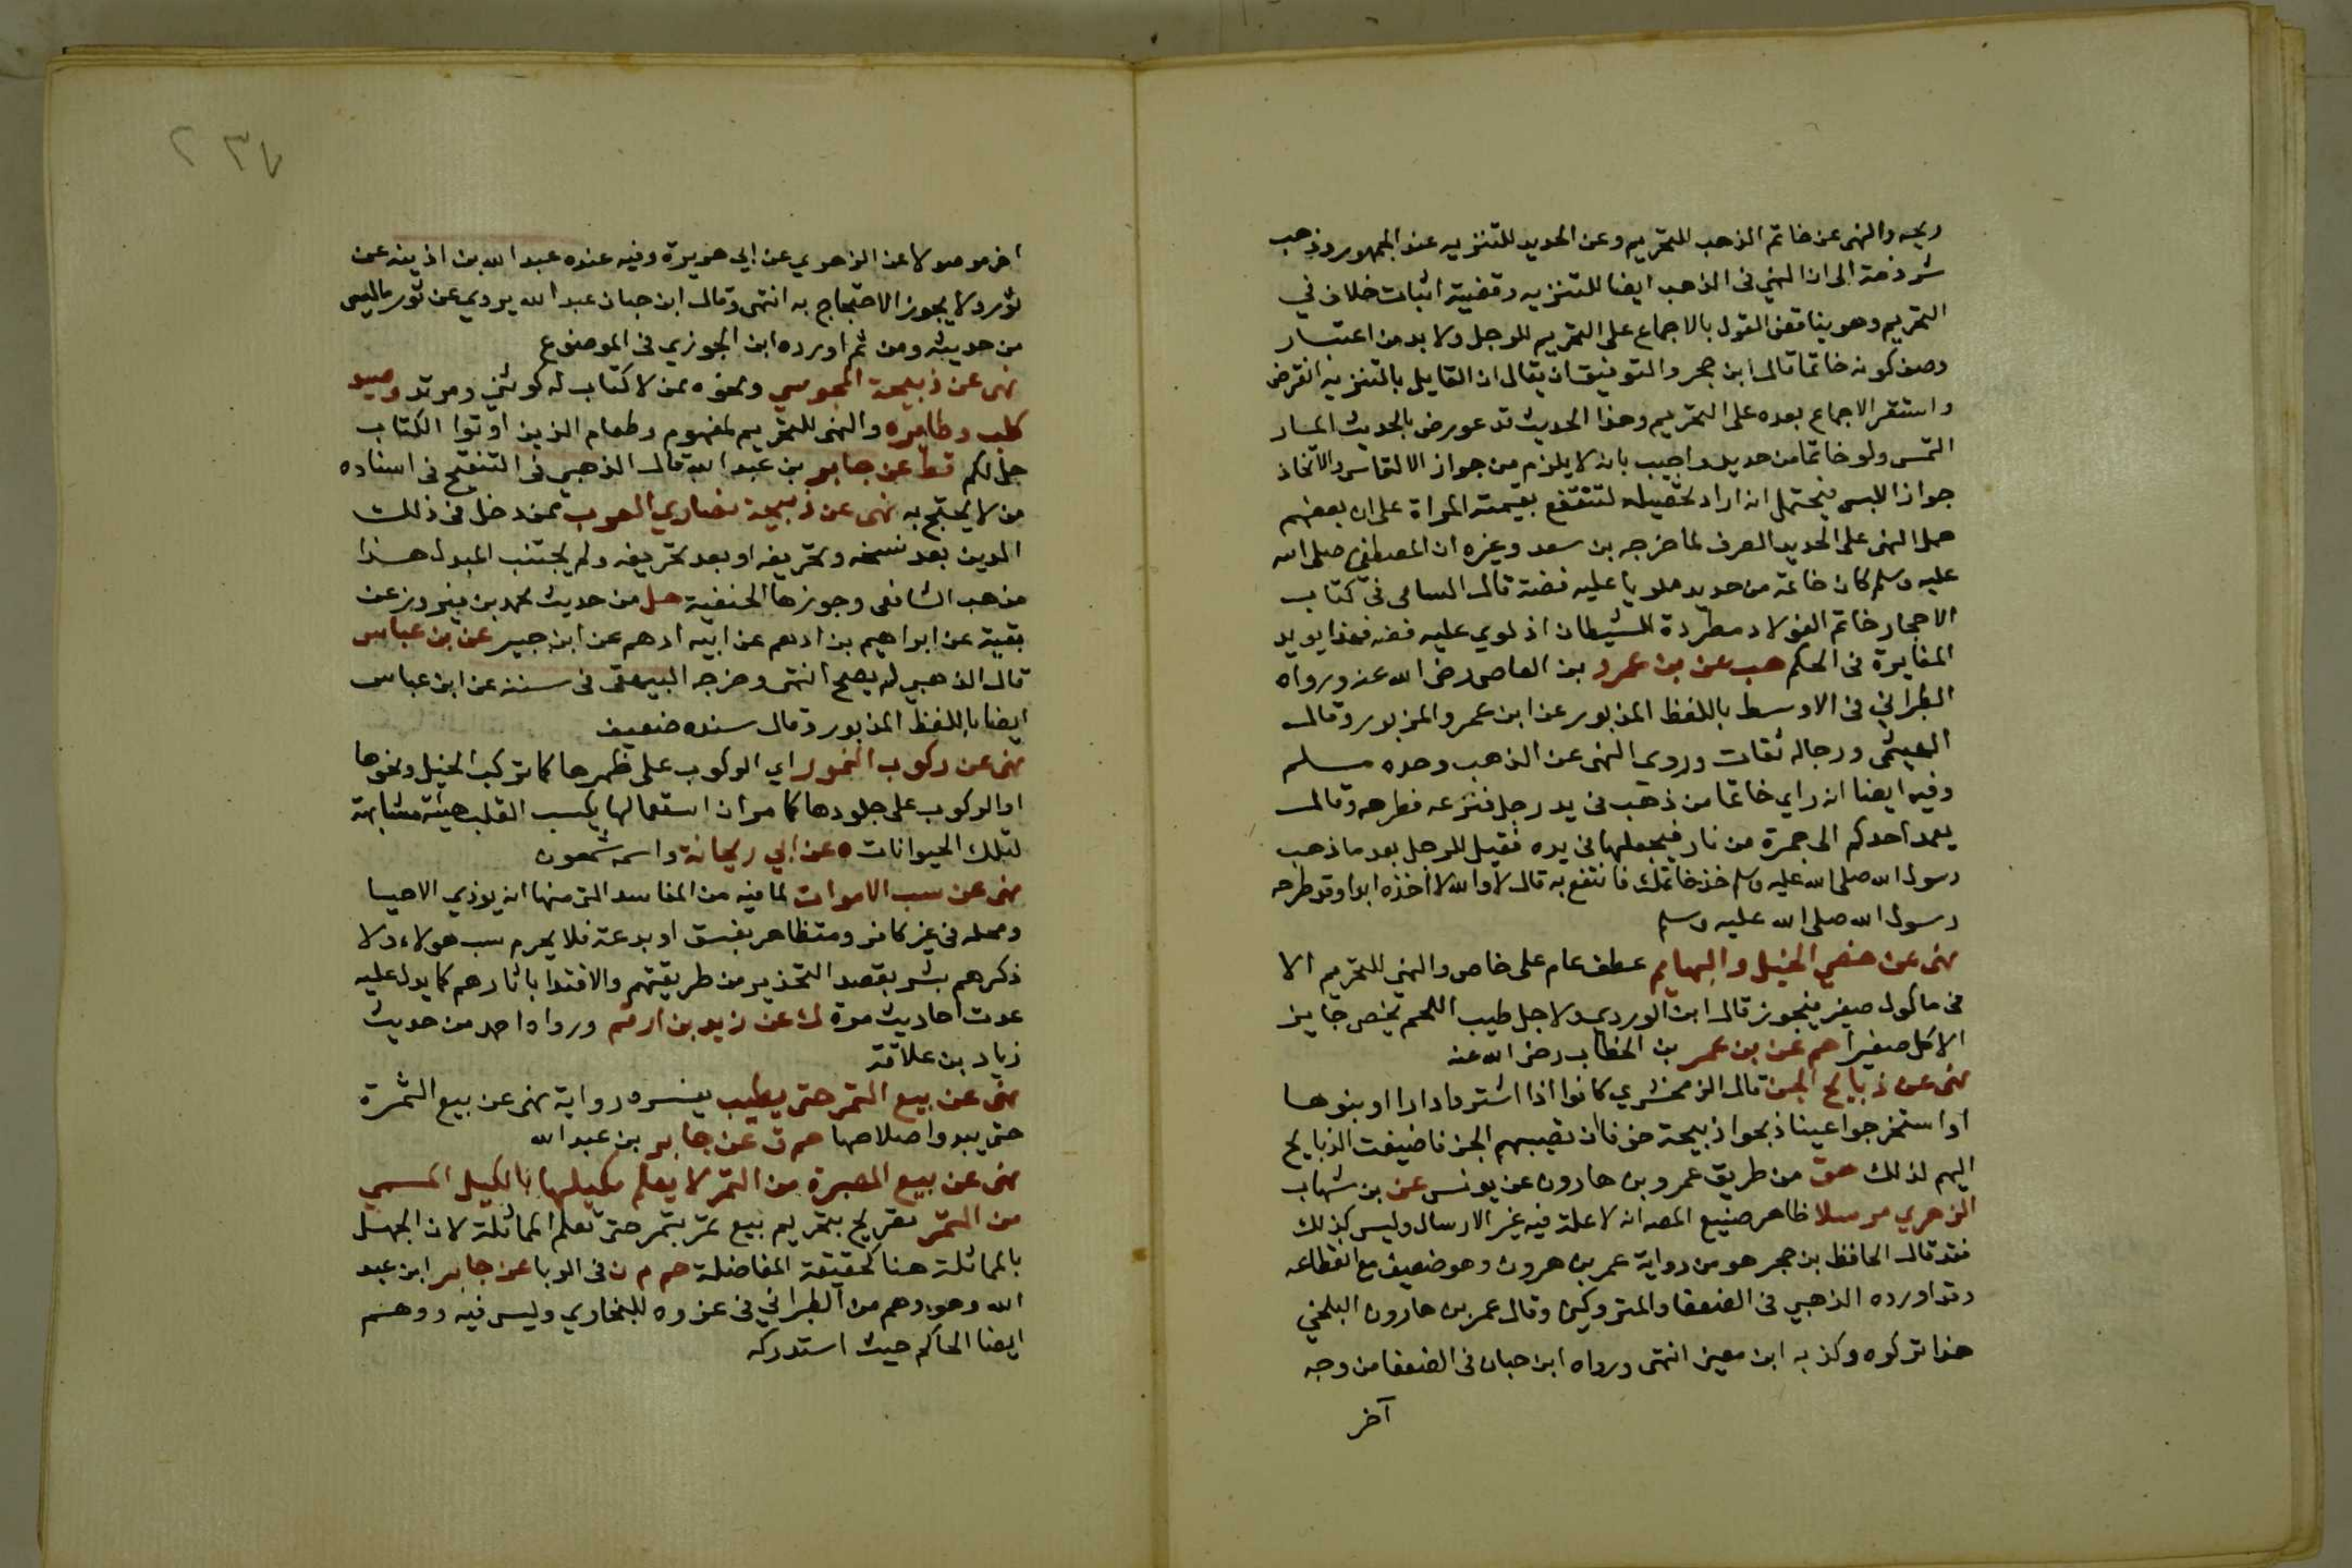 ريحه والنهى عن خاتم الذهب للتحريم وعن الحديد للتنزيه عند الجمهور وذهب
شرذمة الى ان النهي في الذهب ايضا للتنزيه وقضية اثبات خلاف في
التحريم وهو يناقض القول بالاجماع على التحريم للرجل ولا بد من اعتبار
وصف كونه خاتما قال ابن حجر والتوفيق ان يقال ان القايل بالتنزيه انقرض
واستقر الاجماع بعده على التحريم وهذا الحديث قد عورض بالحديث المار
التمس ولو خاتما من حديد واجيب بانه لا يلزم من جواز الالتماس والاتخاذ
جواز اللبس فيحتمل انه اراد تحصيله لتنتفع بقيمته المراة على ان بعضهم
حمل النهى على الحديد الصرف لما خرجه بن سعد وغيره ان المصطفى صلى الله
عليه وسلم كان خاتمه من حديد ملويا عليه فضة قال السامى في كتاب
الاحجار خاتم الفولاد مطردة للشيطان اذ لوي عليه فضه فهذا يويد
المغايرة في الحكم هب عن بن عمرو بن العاصى رضى الله عنه ورواه
الطبراني في الاوسط باللفظ المذبور عن ابن عمرو المزبور وقال
الهيثمى ورجاله ثقات وروى النهى عن الذهب وحده مسلم
وفيه ايضا انه راي خاتما من ذهب في يد رجل فنزعه فطرحه وقال
يعمد احدكم الى جمرة من نار فيجعلها في يده فقيل للرجل بعد ما ذهب
رسول الله صلى الله عليه وسلم خذ خاتمك فانتفع به قال لا والله لا أخذه ابدا وقد طرحه
رسول الله صلى الله عليه وسلم
نهى عن خصي الخيل والبهايم عطف عام على خاص والنهي للتحريم الا
في ماكول صغير فيجوز قال ابن الوردى ولاجل طيب اللحم يخص جايز
الاكل صغيرا حم عن بن عمر بن الخطاب رضى الله عنه
نهى عن ذبايح الجن قال الزمخشري كانوا اذا اشتروا دارا او بنوها
او استخرجوا عينا ذبحوا ذبيحة خوفا ان تصيبهم الجن فاضيفت الذبايح
اليهم لذلك هق من طريق عمرو بن هارون عن يونس عن بن شهاب
الزهري مرسلا ظاهر صنيع المصه انه لا علة فيه غير الارسال وليس كذلك
فقد قال الحافظ بن حجر هو من رواية عمر بن هرون وهو ضعيف مع انقطاعه
وقد اورده الذهبي في الضعفا والمتروكين وقال عمر بن هارون البلخي
هذا تركوه وكذبه ابن معين انتهى ورواه ابن حبان في الضعفا من وجه
آخر
٢٣٧
اخر موصولا عن الزهري عن ابي هريرة وفيه عنده عبد الله بن اذينة عن
ثور ولا يجوز الاحتجاج به انتهى وقال ابن حبان عبد الله يروي عن ثور ماليس
من حديثه ومن ثم اورده ابن الجوزي في الموضوع
نهى عن ذبيحة المجوسي ونحوه ممن لا كتاب له كوثني ومرتد وصيد
كلبه وطايره والنهى للتحريم لمفهوم وطعام الذين اوتوا الكتاب
حل لكم قط عن جابر بن عبد الله قال الذهبي في التنقيح في اسناده
من لا يحتج به نهى عن ذبيحة نصاري العرب ممن دخل في ذلك
الدين بعد نسخه وتحريفه او بعد تحريفه ولم يجتنب المبدل هذا
مذهب الشافعي وجوزها الحنفية حل من حديث محمد بن فيروز عن
بقية عن ابراهيم بن ادهم عن ابيه ادهم عن ابن جبير عن بن عباس
قال الذهبي لم يصح انتهى وخرجه البيهقى في سننه عن ابن عباس
ايضا باللفظ المذبور وقال سنده ضعيف
نهى عن ركوب النمور اي الركوب على ظهرها كما تركب الخيل ونحوها
او الركوب على جلودها كما مر ان استعمالها يكسب القلب هيئة مشابهة
لتلك الحيوانات ه عن ابي ريحانة واسمه شمعون
نهى عن سب الاموات لما فيه من المفاسد التى منها انه يوذي الاحيا
ومحله في غير كافر ومتظاهر بفسق او بدعة فلا يحرم سب هولاء ولا
ذكرهم بشر بقصد التحذير من طريقتهم والاقتدا باثارهم كما يدل عليه
عدت احاديث مرة ك عن زيد بن ارقم ورواه احمد من حديث
زياد بن علاقة
نهى عن بيع التمر حتى يطيب يفسره رواية نهى عن بيع الثمرة
حتى يبدوا صلاحها حم ق عن جابر بن عبد الله
نهى عن بيع الصبرة من التمر لا يعلم مكيلها بالكيل المسمي
من التمر تصريح بتحريم بيع تمر بتمر حتى تعلم المماثلة لان الجهل
بالمماثلة هنا كحقيقة المفاضلة حم م ن في الربا عن جابر ابن عبد
الله وهو وهم من الطبراني في عزوه للبخاري وليس فيه ووهم
ايضا الحاكم حيث استدركه